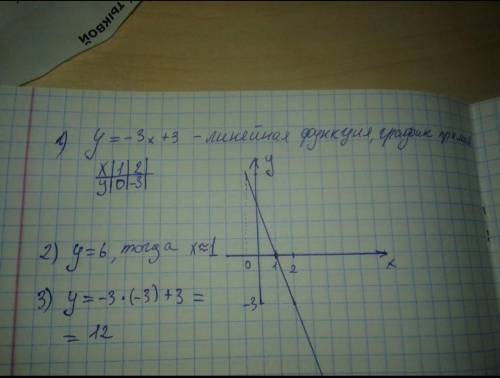 ТЫКВОЙ
1) y = -3x + 3 - линейная функция, график прямая
x | 1 | 2 |
y | 0 | -3 |
y
0 1 2
x
-3
2) y = 6, тогда x ≈ 1
3) y = -3 · (-3) + 3 =
= 12